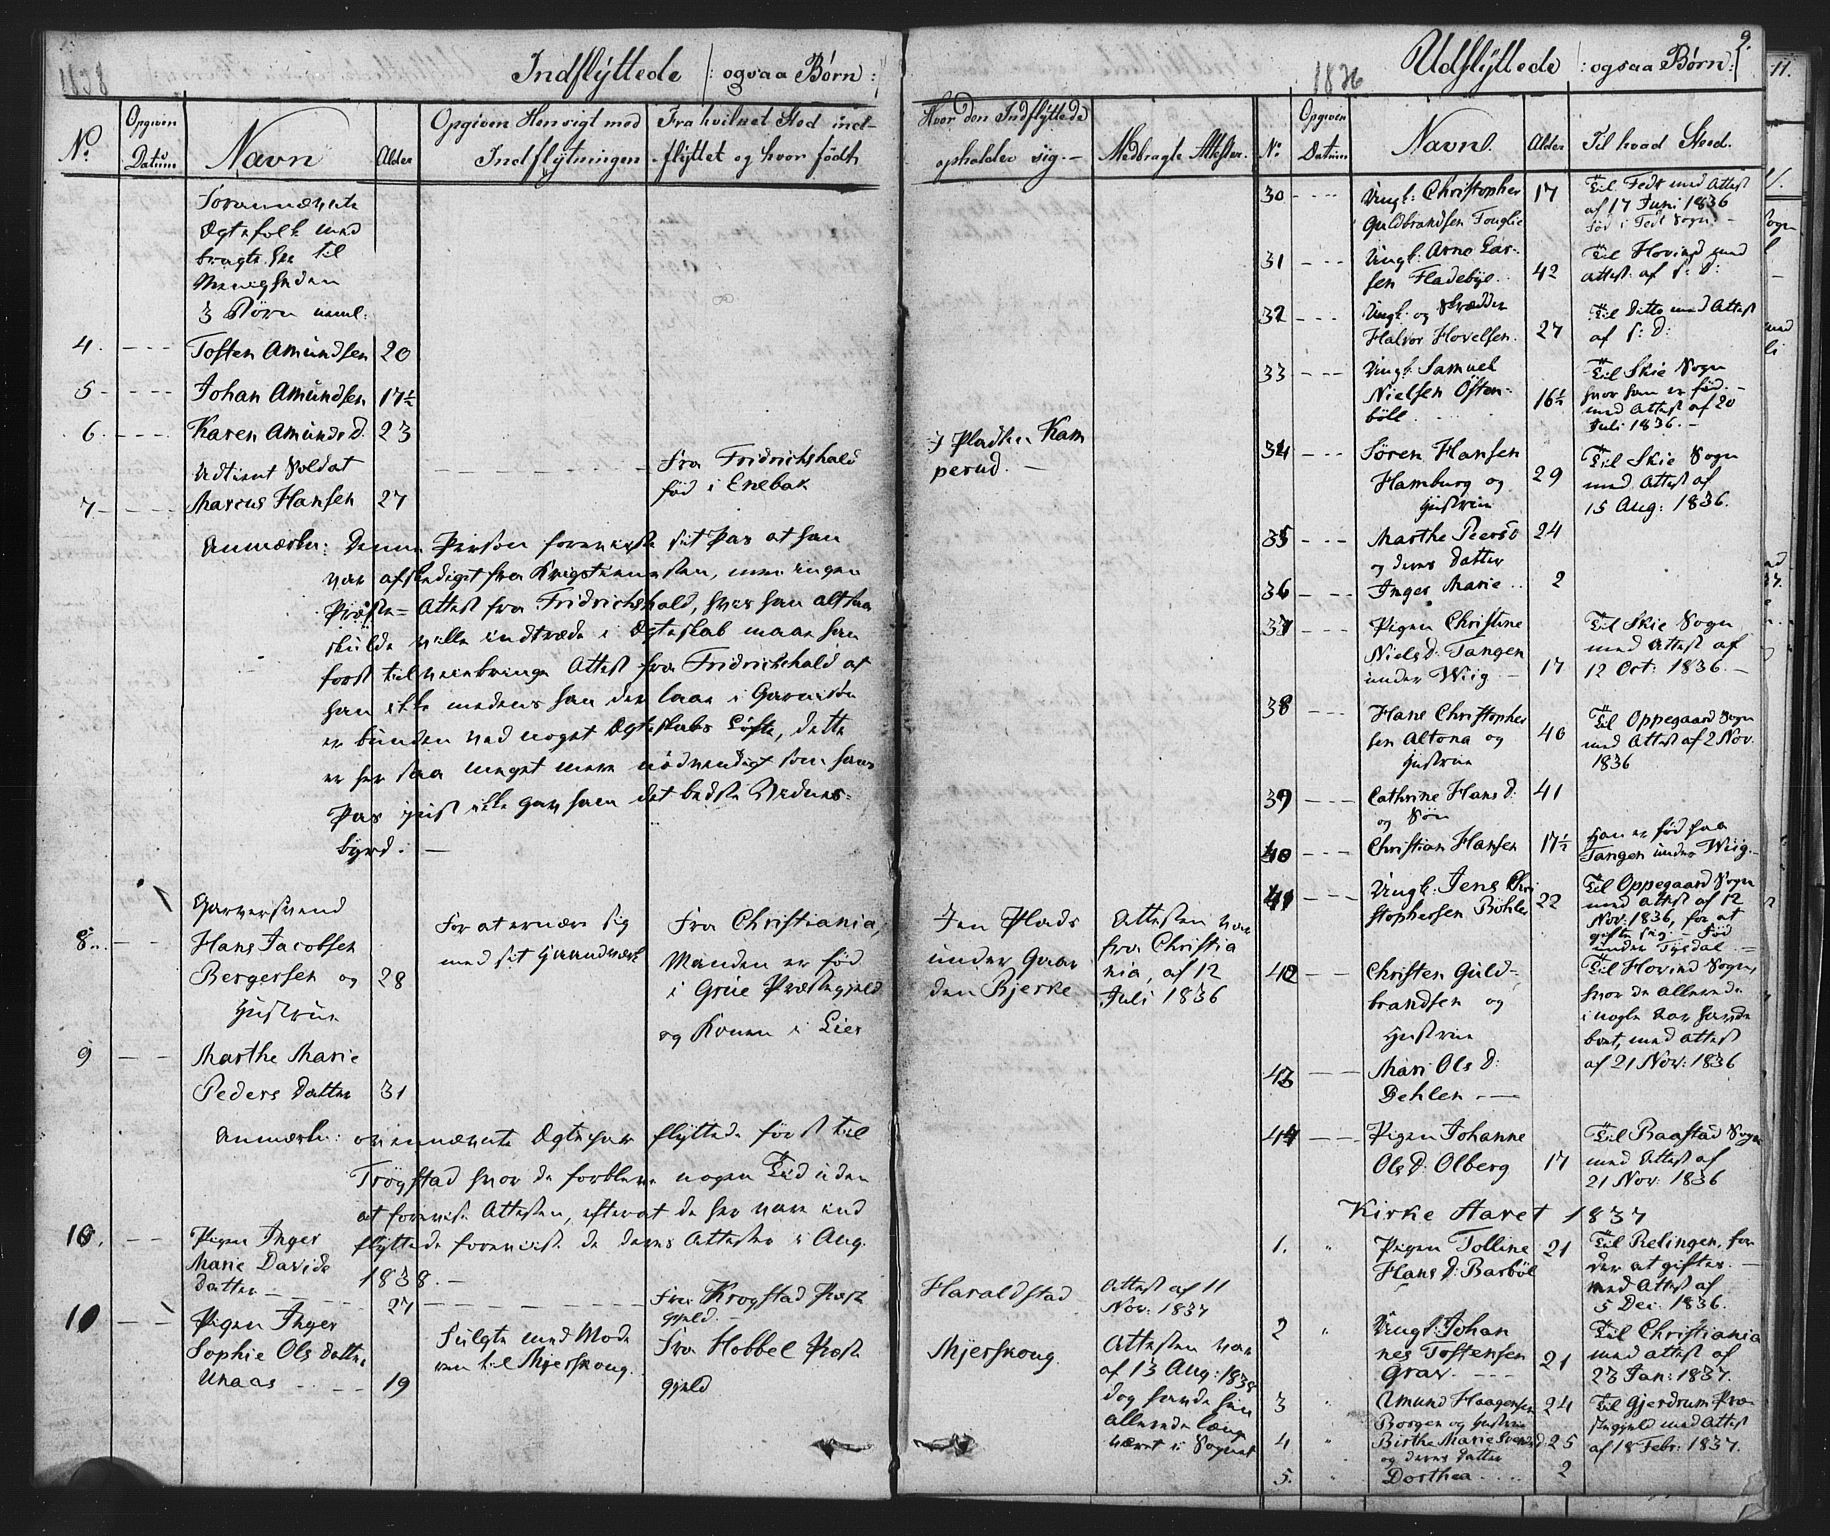 1838
Indflÿttede |: ogsaa Børn :|
No
Opgiven Datum
Navn
Alder
Opgiven Hensigt med Indflÿtningen
Fra hvilket Sted indflÿttet og hvor født
Hvor den Indflÿttede opholder sig.
Medbragte Attester.
Forannævnte
Ægtefolk med
bragte her til
Menigheden
3 Børn neml:
4 - - - Tosten Amundsen 20
5 - - - Johan Amundsen 17½
6 - - - Karen Amunds d. 23
Udtient Soldat
7 - - - Marcus Hansen 27
Fra Fridrichshald
fød i Enebak
I Pladsen Kam
perud.
Anmærkn: Denne Person foreviiste sit Pas at han
var afskediget fra Krigstienesten, men ingen
Præste-Attest fra Fridrichshald, hvis han altsaa
skulde ville indtræde i Ægteskab maae han
først tilveiebringe Attest fra Fridrichshald at
han ikke medens han der laae i Garnison
er bunden ved noget Ægteskabs Løfte, dette
er her saa meget mere nødvendigt som hans
Pas just ikke gav ham det bedste Vidnes-
byrd.
Garversvend
8 - - - Hans Jacobsen
Bergersen og 28
Hustrue
For at ernære sig
med sit Haandværk
Fra Christiania,
Manden er fød
i Grue Præstegjeld
og Konen i Lier
I en Plads
under Gaar
den Bjerke
Attesten var
fra Christia
nia, af 12
Juli 1836
9 - - - Marthe Marie
Peders Datter 31
Anmærkn: ovennævnte Ægtepar flyttede først til
Trøgstad hvor de forbleve nogen Tid uden
at forevise Attesten, efterat de her vare ind
flyttede foreviiste de deres Attester i Aug.
1838.
10. - - - Pigen Inger
Marie Davids
Datter 27
Fra Krogstad Præst
gjeld.
Haraldstad
Attest af 11
Nov: 1837
10 - - - Pigen Inger
Sophie Ols Datter
Unaas 19
Fulgte med Mode
ren til Mjerskoug.
Fra Hobbel Præst
gjeld
Mjerskoug.
Attesten var
af 13 Aug: 1838
dog havde hun
allerede længe
været i Sognet
9.
1836
Udflÿttede |: ogsaa Børn :|
No
Opgiven Datum
Navn.
Alder
Til hvad Sted.
30 - - - Ungk: Christopher 17
Guldbrandsen Tonglie
Til Fedt med Attest
af 17 Juni 1836
fød i Fedt Sogn.
31 - - - Ungk: Arne Lar-
sen Fladebye. 42
Til Hovind med
Attest af S: D:
32 - - - Ungk: og Skrædder
Halvor Hovelsen. 27
Til Ditto med Attest
af S: D:
33 - - - Ungk: Samuel
Nielsen Østen-
böle 16½
Til Skie Sogn
hvor han er fød.
med Attest af 20
Juli 1836.
34 - - - Søren Hansen
Hamburg og 29
Hustrue
Til Skie Sogn
med Attest af
15 Aug: 1836.
35 - - - Marthe Peers D 24
og deres Datter
36 - - - Inger Marie 2
37 - - - Pigen Christine
Niels d. Tangen
under Wiig 17
Til Skie Sogn
med Attest af
12 Oct: 1836.
38 - - - Hans Christopher
sen Altona og 40
Hustrue
Til Oppegaard Sogn
med Attest af 2 Nov.
1836
39 - - - Cathrine Hans d: 41
og Søn
40 - - - Christian Hansen 17½
Han er fød paa
Tangen under Wiig.
41 - - - Ungk: Jens Chri
stophersen Bøhler 22
Til Oppegaard Sogn
med Attest af 12
Nov: 1836, for at
gifte sig. - Fød
under Tysdal.
42 - - - Christen Guld-
brandsen og
Hustrue
Til Hovind Sogn,
hvor de allerede
i nogle Aar havde
boet, med Attest
af 21 Nov: 1836
43 - - - Mari Ols d:
Dehlen
44 - - - Pigen Johanne
Ols D: Olberg 17
Til Baastad Sogn
med Attest af
21 Nov: 1836
Kirke Aaret 1837
1. " Pigen Tolline 21
Hans D: Barböl
Til Relingen, for
der at giftes.
med Attest af
5 Dec: 1836.
2 " Ungk: Johan
nes Tostensen
Grav. 21
Til Christiania
med Attest af
23 Jan: 1837.
3 " Amund Haagensen 24
Borgen og Hustrue
4 " Birthe Marie Svends d 25
og deres Datter
5. " Dorthea 2
Til Gjerdrum Præ
stegjeld med Attest
af 18 Febr: 1837.
11.